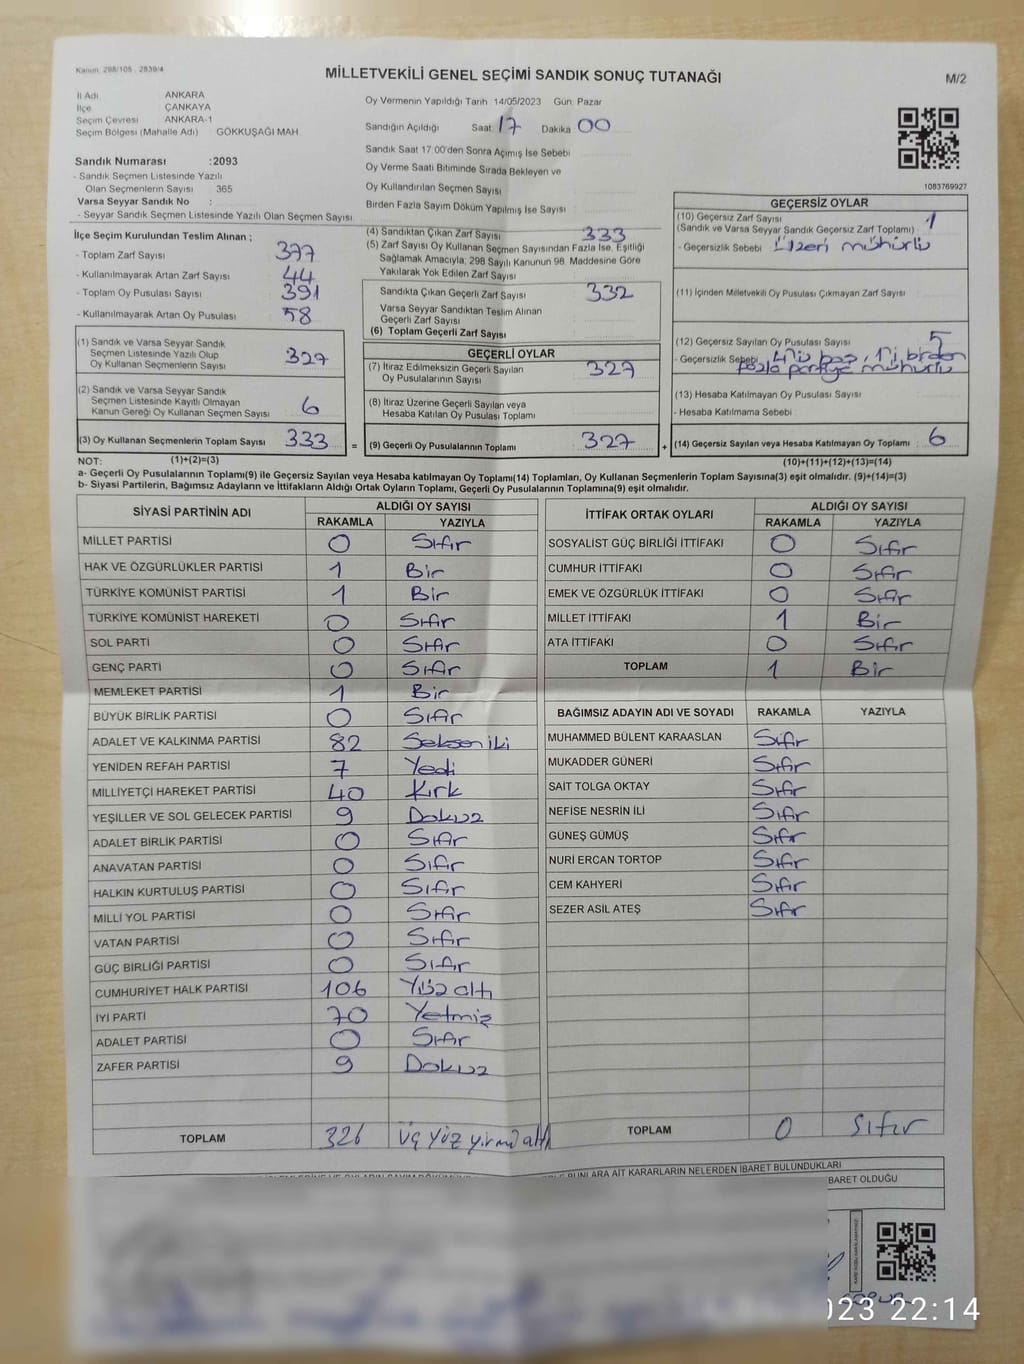 Kanun: 298/105 , 2839/4
MİLLETVEKİLİ GENEL SEÇİMİ SANDIK SONUÇ TUTANAĞI
M/2
İl Adı ANKARA
İlçe ÇANKAYA
Seçim Çevresi ANKARA-1
Seçim Bölgesi (Mahalle Adı) GÖKKUŞAĞI MAH
Sandık Numarası :2093
- Sandık Seçmen Listesinde Yazılı
Olan Seçmenlerin Sayısı 365
Varsa Seyyar Sandık No :
- Seyyar Sandık Seçmen Listesinde Yazılı Olan Seçmen Sayısı
Oy Vermenin Yapıldığı Tarih 14/05/2023 Gün: Pazar
Sandığın Açıldığı Saat 17 Dakika 00
Sandık Saat 17:00'den Sonra Açımış İse Sebebi
Oy Verme Saati Bitiminde Sırada Bekleyen ve
Oy Kullandırılan Seçmen Sayısı
Birden Fazla Sayım Döküm Yapılmış İse Sayısı
1083769927
İlçe Seçim Kurulundan Teslim Alınan ;
- Toplam Zarf Sayısı 377
- Kullanılmayarak Artan Zarf Sayısı 44
- Toplam Oy Pusulası Sayısı 391
- Kullanılmayarak Artan Oy Pusulası 58
(1) Sandık ve Varsa Seyyar Sandık
Seçmen Listesinde Yazılı Olup
Oy Kullanan Seçmenlerin Sayısı 327
(2) Sandık ve Varsa Seyyar Sandık
Seçmen Listesinde Kayıtlı Olmayan
Kanun Gereği Oy Kullanan Seçmen Sayısı 6
(3) Oy Kullanan Seçmenlerin Toplam Sayısı 333
(1)+(2)=(3)
(4) Sandıktan Çıkan Zarf Sayısı 333
(5) Zarf Sayısı Oy Kullanan Seçmen Sayısından Fazla İse, Eşitliği
Sağlamak Amacıyla; 298 Sayılı Kanunun 98. Maddesine Göre
Yakılarak Yok Edilen Zarf Sayısı
Sandıkta Çıkan Geçerli Zarf Sayısı 332
Varsa Seyyar Sandıktan Teslim Alınan
Geçerli Zarf Sayısı
(6) Toplam Geçerli Zarf Sayısı
GEÇERLİ OYLAR
(7) İtiraz Edilmeksizin Geçerli Sayılan
Oy Pusulalarının Sayısı 327
(8) İtiraz Üzerine Geçerli Sayılan veya
Hesaba Katılan Oy Pusulası Toplamı
= (9) Geçerli Oy Pusulalarının Toplamı 327 +
GEÇERSİZ OYLAR
(10) Geçersiz Zarf Sayısı 1
(Sandık ve Varsa Seyyar Sandık Geçersiz Zarf Toplamı)
- Geçersizlik Sebebi Üzeri mühürlü
(11) İçinden Milletvekili Oy Pusulası Çıkmayan Zarf Sayısı
(12) Geçersiz Sayılan Oy Pusulası Sayısı 5
- Geçersizlik Sebebi 4'ü boş, 1'i birden
fazla partiye mühürlü
(13) Hesaba Katılmayan Oy Pusulası Sayısı
- Hesaba Katılmama Sebebi
(14) Geçersiz Sayılan veya Hesaba Katılmayan Oy Toplamı 6
(10)+(11)+(12)+(13)=(14)
NOT:
a- Geçerli Oy Pusulalarının Toplamı(9) ile Geçersiz Sayılan veya Hesaba katılmayan Oy Toplamı(14) Toplamları, Oy Kullanan Seçmenlerin Toplam Sayısına(3) eşit olmalıdır. (9)+(14)=(3)
b- Siyasi Partilerin, Bağımsız Adayların ve İttifakların Aldığı Ortak Oyların Toplamı, Geçerli Oy Pusulalarının Toplamına(9) eşit olmalıdır.
SİYASİ PARTİNİN ADI ALDIĞI OY SAYISI
RAKAMLA YAZIYLA
MİLLET PARTİSİ 0 Sıfır
HAK VE ÖZGÜRLÜKLER PARTİSİ 1 Bir
TÜRKİYE KOMÜNİST PARTİSİ 1 Bir
TÜRKİYE KOMÜNİST HAREKETİ 0 Sıfır
SOL PARTİ 0 Sıfır
GENÇ PARTİ 0 Sıfır
MEMLEKET PARTİSİ 1 Bir
BÜYÜK BİRLİK PARTİSİ 0 Sıfır
ADALET VE KALKINMA PARTİSİ 82 Seksen iki
YENİDEN REFAH PARTİSİ 7 Yedi
MİLLİYETÇİ HAREKET PARTİSİ 40 Kırk
YEŞİLLER VE SOL GELECEK PARTİSİ 9 Dokuz
ADALET BİRLİK PARTİSİ 0 Sıfır
ANAVATAN PARTİSİ 0 Sıfır
HALKIN KURTULUŞ PARTİSİ 0 Sıfır
MİLLİ YOL PARTİSİ 0 Sıfır
VATAN PARTİSİ 0 Sıfır
GÜÇ BİRLİĞİ PARTİSİ 0 Sıfır
CUMHURİYET HALK PARTİSİ 106 Yüz altı
İYİ PARTİ 70 Yetmiş
ADALET PARTİSİ 0 Sıfır
ZAFER PARTİSİ 9 Dokuz
TOPLAM 326 üç yüz yirmi altı
İTTİFAK ORTAK OYLARI ALDIĞI OY SAYISI
RAKAMLA YAZIYLA
SOSYALİST GÜÇ BİRLİĞİ İTTİFAKI 0 Sıfır
CUMHUR İTTİFAKI 0 Sıfır
EMEK VE ÖZGÜRLÜK İTTİFAKI 0 Sıfır
MİLLET İTTİFAKI 1 Bir
ATA İTTİFAKI 0 Sıfır
TOPLAM 1 Bir
BAĞIMSIZ ADAYIN ADI VE SOYADI RAKAMLA YAZIYLA
MUHAMMED BÜLENT KARAASLAN Sıfır
MUKADDER GÜNERİ Sıfır
SAİT TOLGA OKTAY Sıfır
NEFİSE NESRİN İLİ Sıfır
GÜNEŞ GÜMÜŞ Sıfır
NURİ ERCAN TORTOP Sıfır
CEM KAHYERİ Sıfır
SEZER ASİL ATEŞ Sıfır
TOPLAM 0 Sıfır
BUNLARA AİT KARARLARIN NELERDEN İBARET BULUNDUKLARI
BARET OLDUĞU
023 22:14